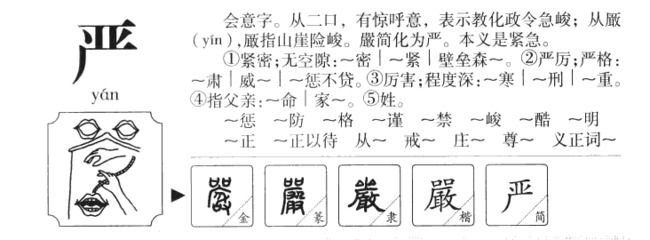 严
yán
会意字。从二口，有惊呼意，表示教化政令急峻；从厰
(yín)，厰指山崖险峻。嚴简化为严。本义是紧急。
①紧密；无空隙：～密｜～紧｜壁垒森～。②严厉；严格：
～肃｜威～｜～惩不贷。③厉害；程度深：～寒｜～刑｜～重。
④指父亲：～命｜家～。⑤姓。
～惩 ～防 ～格 ～谨 ～禁 ～峻 ～酷 ～明
～正 ～正以待 从～ 戒～ 庄～ 尊～ 义正词～
嚴 金 嚴 篆 嚴 隶 嚴 楷 严 简